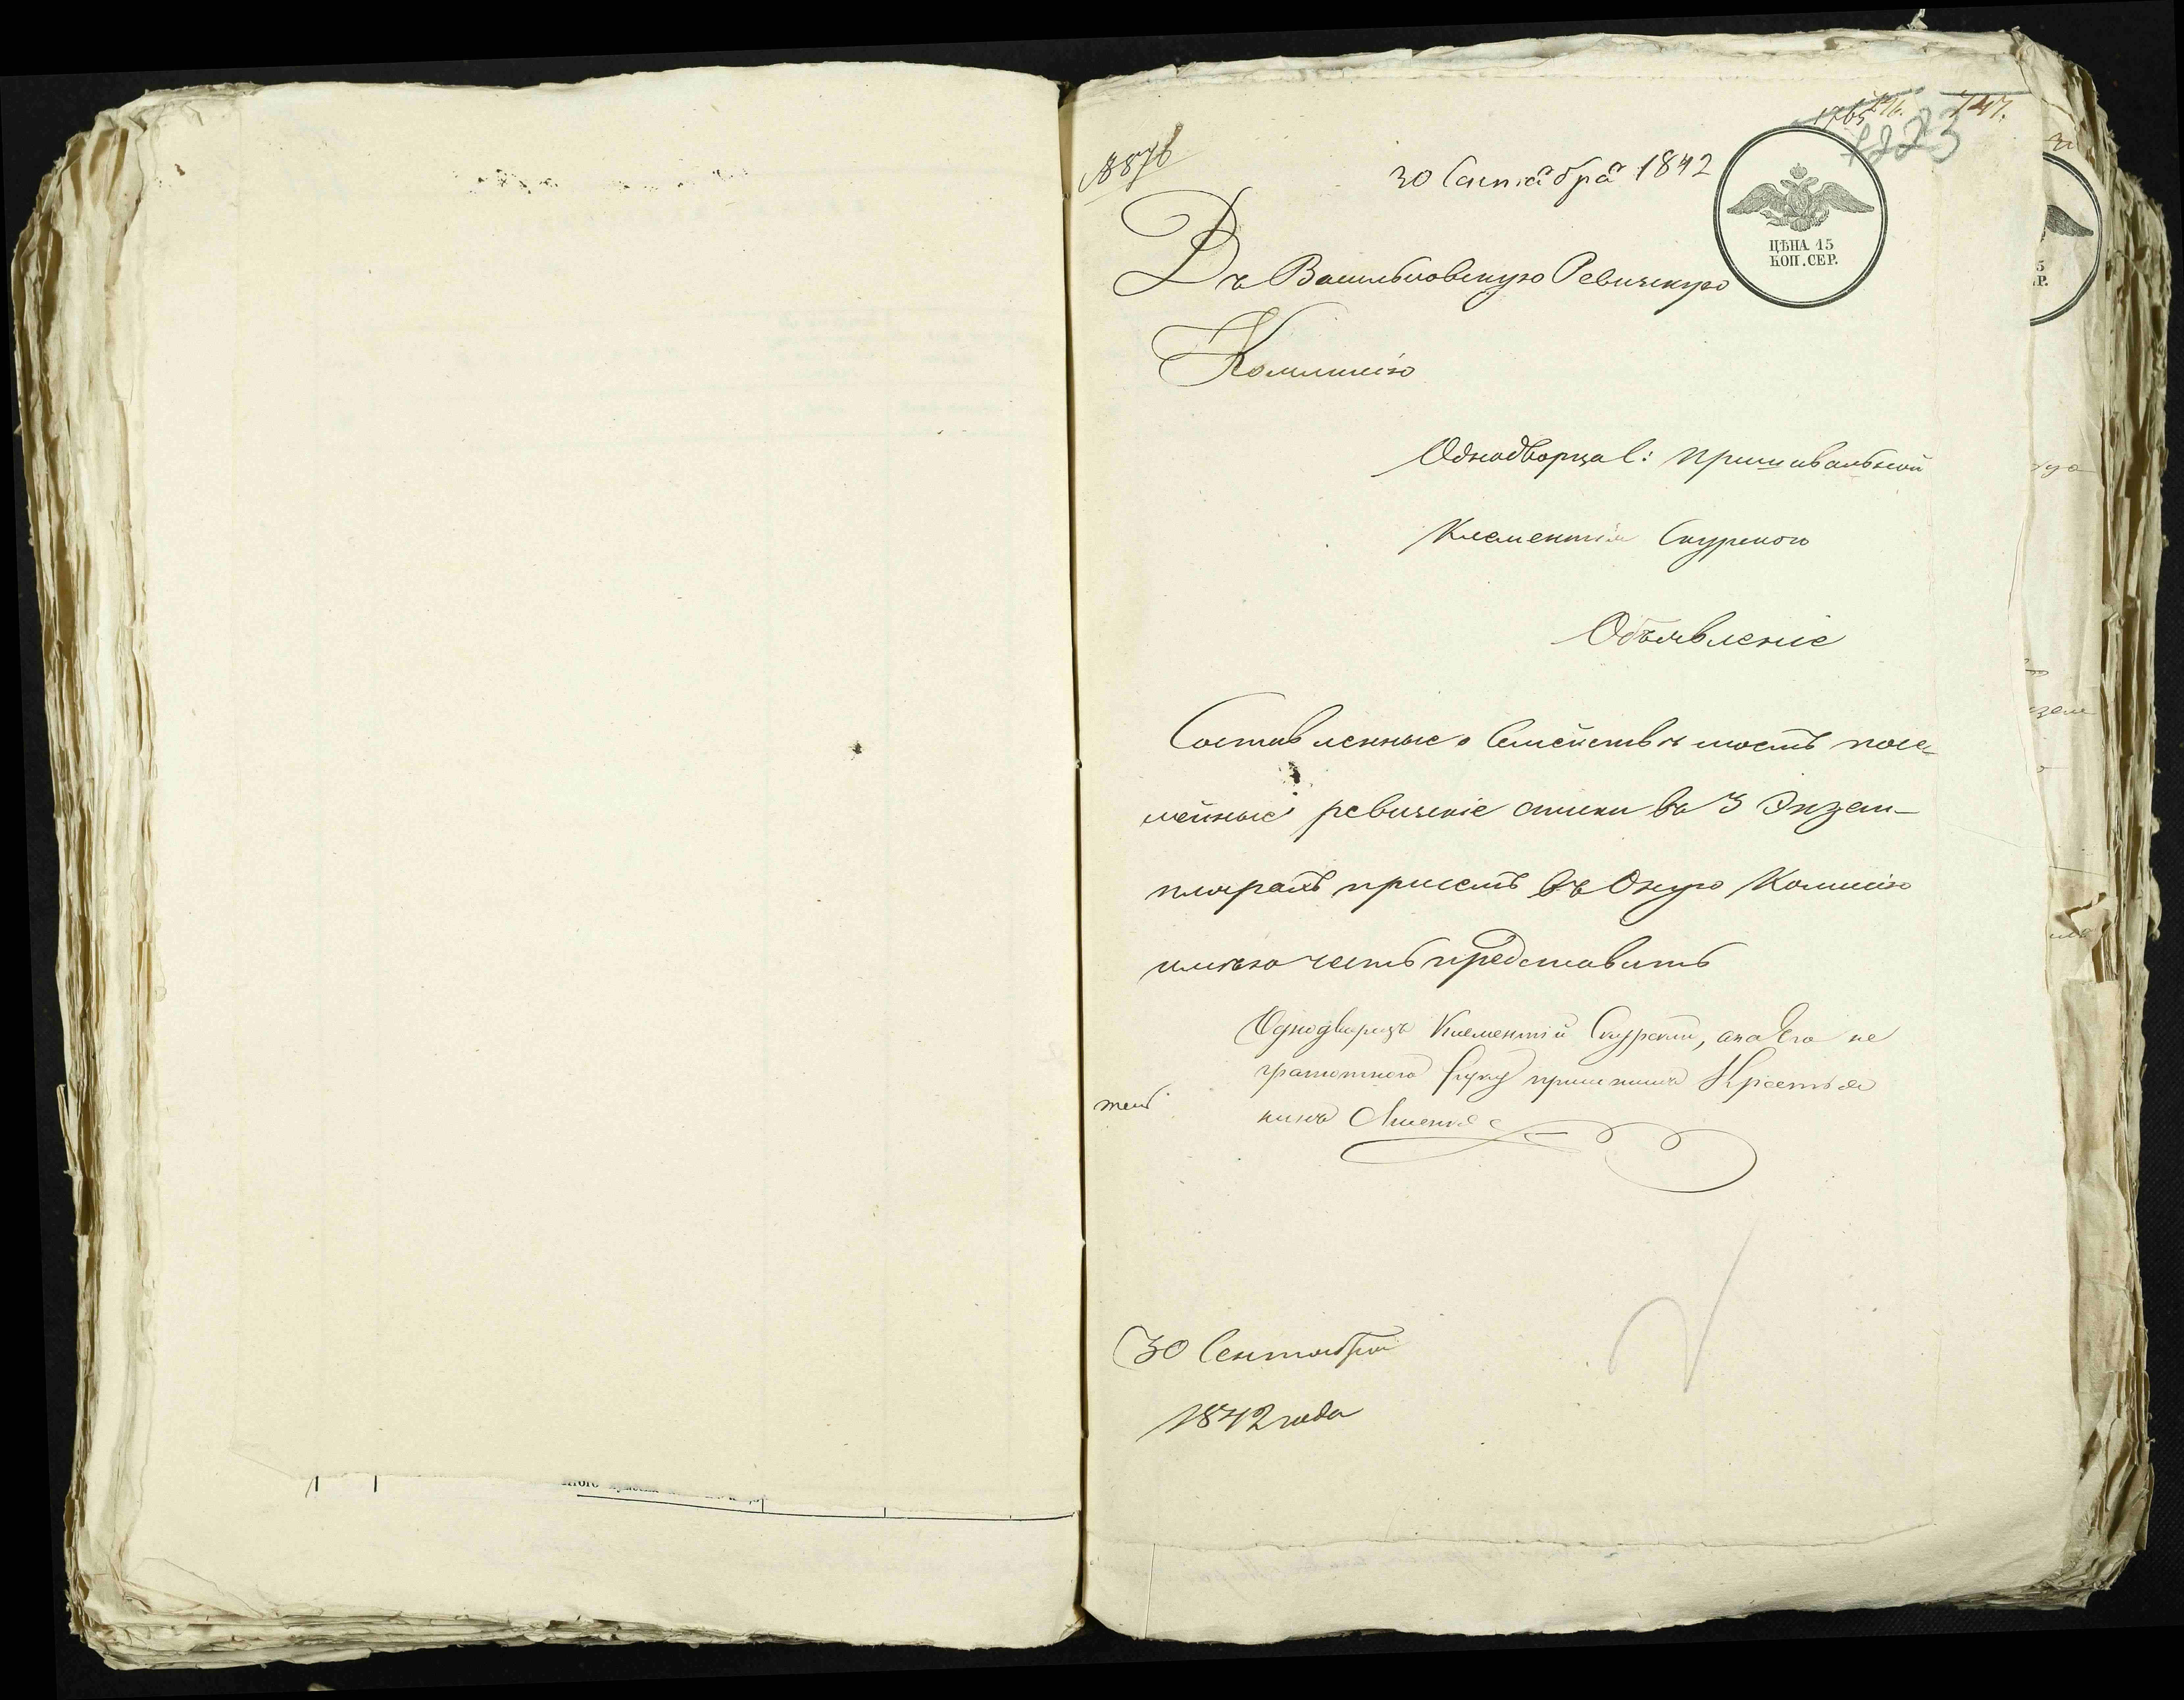 747.
1223
8876
30 Сентября 1842
ЦѢНА 15
КОП. СЕР.
Въ Васильковскую Ревизскую
Коммисію
Однодворца С:
Клементія Скурского
Объявленіе
Составленные о Семействѣ моемъ посе-
мейные ревизскіе списки въ 3 Экзем-
плярахъ при семъ въ Оную Комисію
имѣю честь представить
Однодворецъ Клементій Скурскій, а за Его не
грамотного руку приложилъ Крестья
нинъ
30 Сентября
1842 года